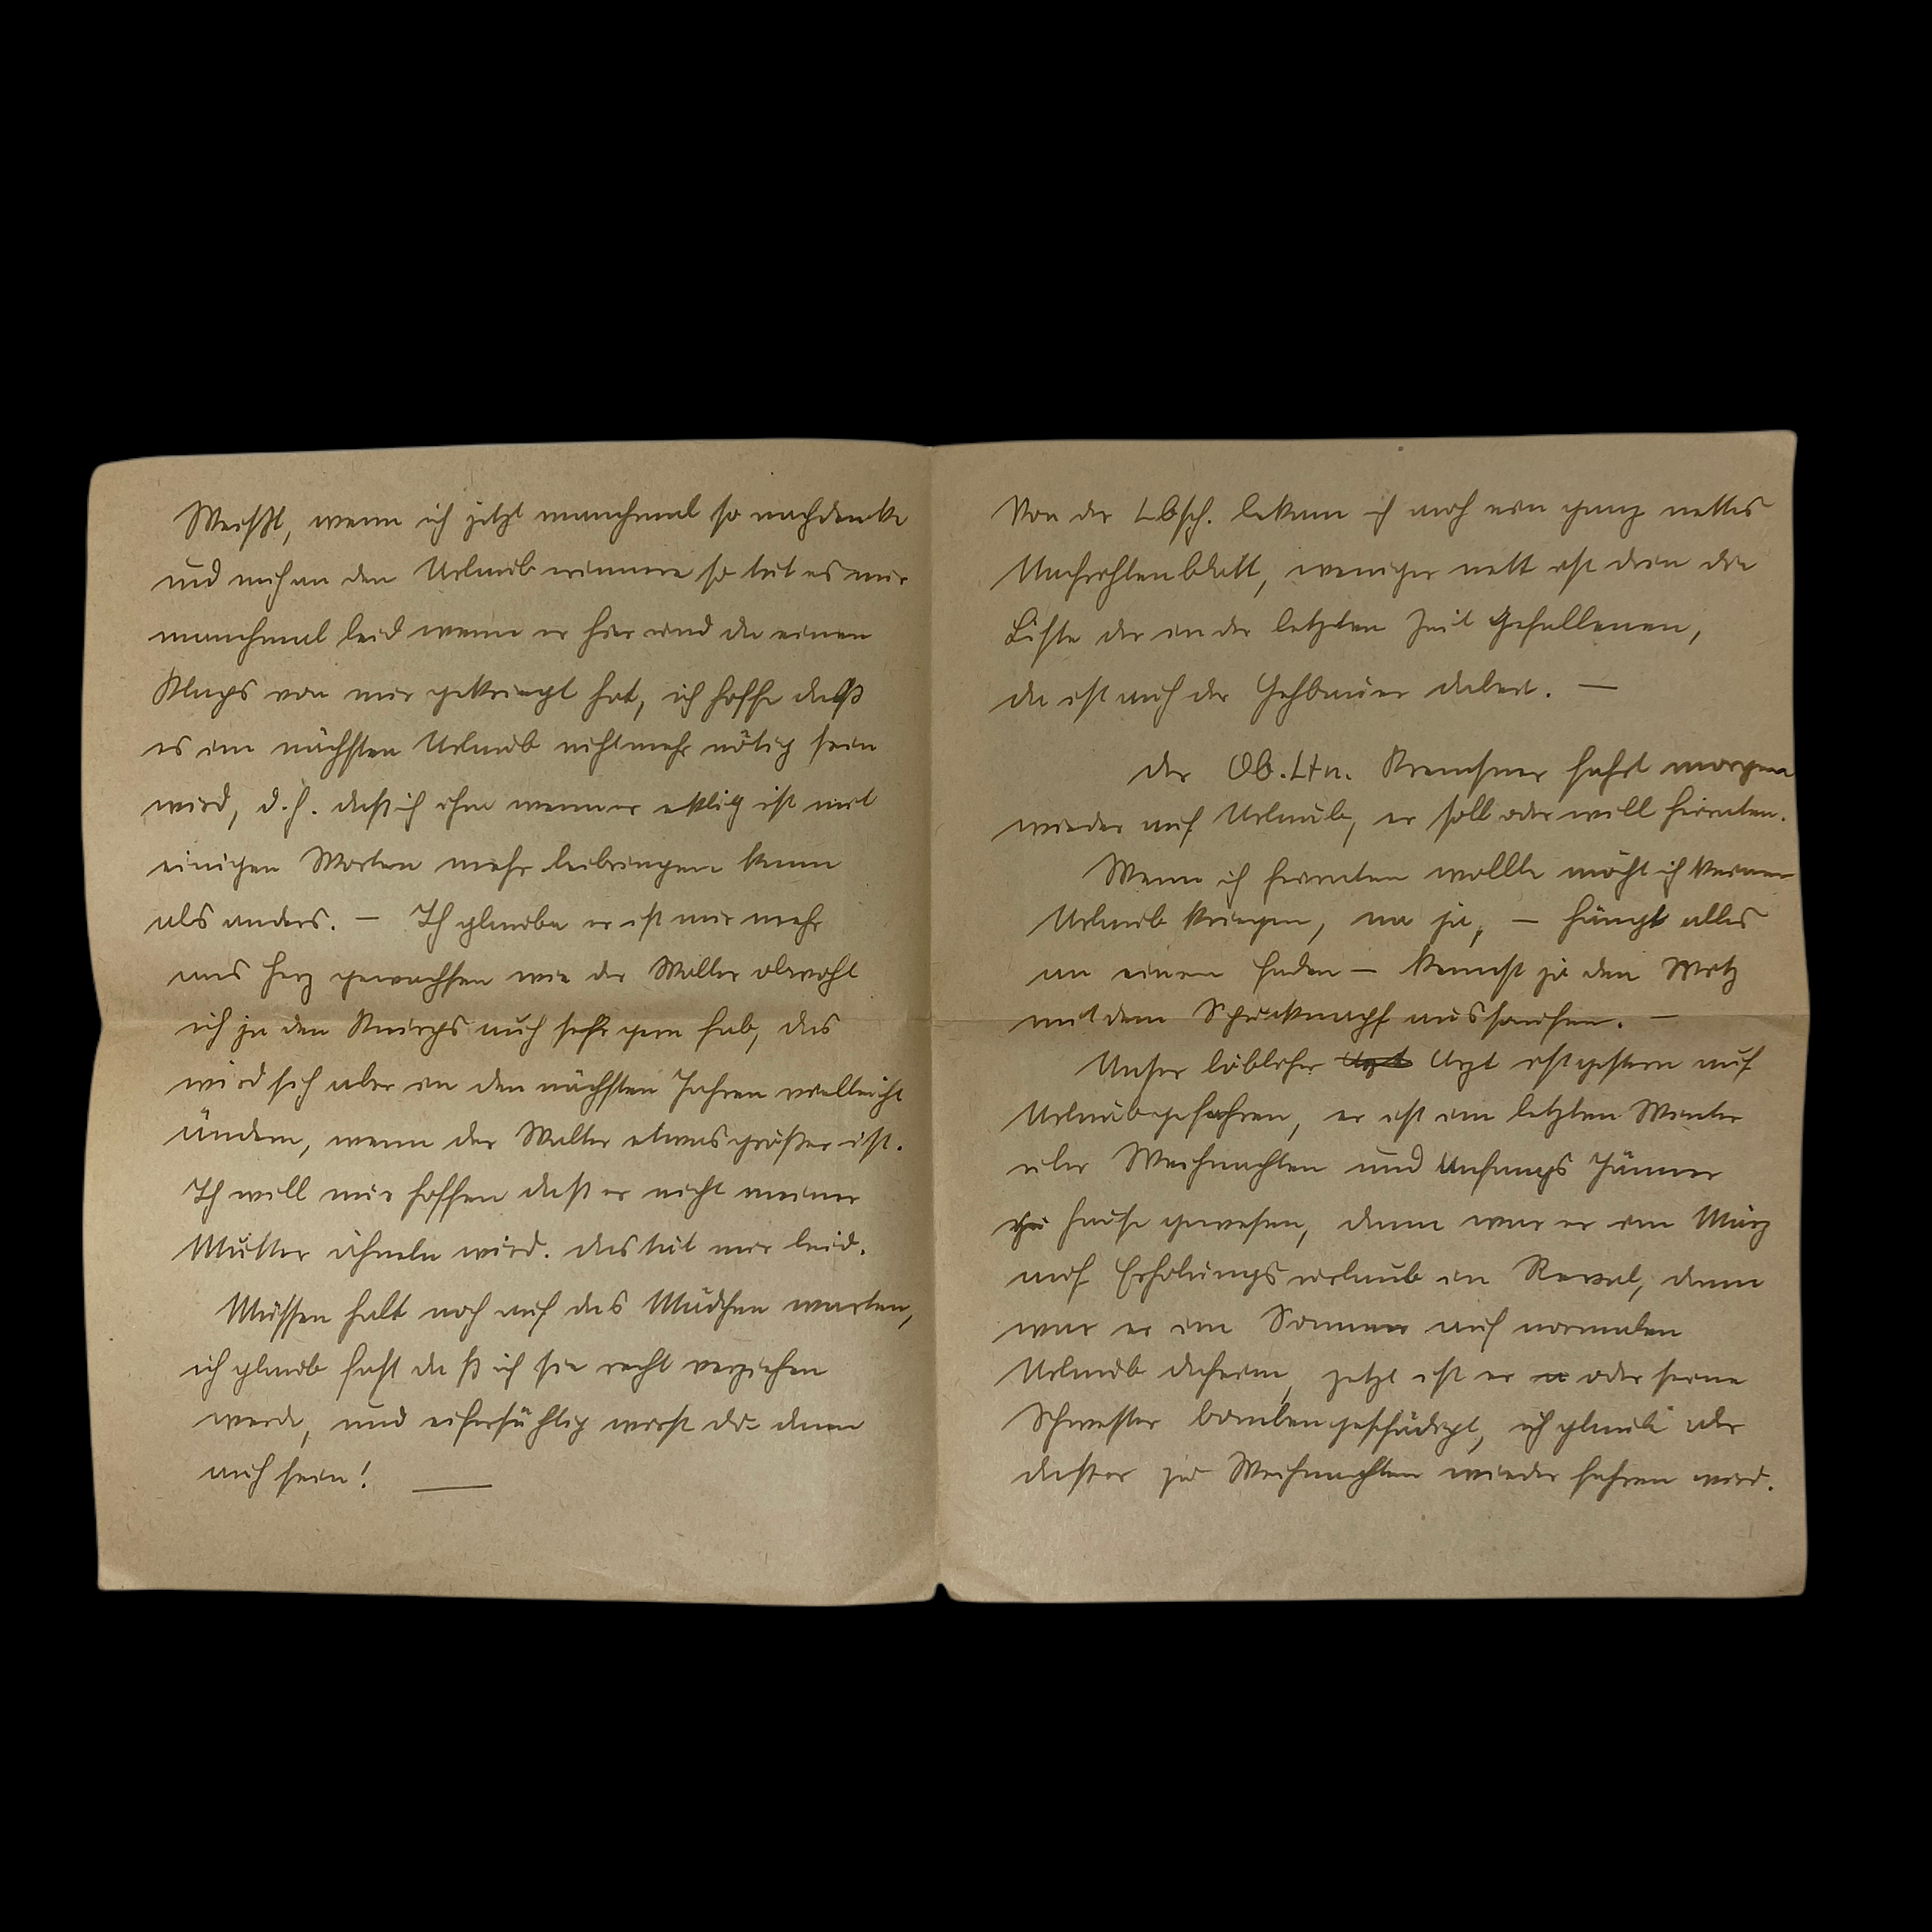 Weißt, wenn ich jetzt manchmal so nachdenke
und mich an den Urlaub erinnere so tut es mir
manchmal leid wenn er hier und da einen
Klaps von mir gekriegt hat, ich hoffe daß
es im nächsten Urlaub nicht mehr nötig sein
wird, d.h. daß ich ihm wenn er eklig ist mit
einigen Worten mehr beibringen kann
als anders. — Ich glaube er ist mir mehr
ans Herz gewachsen wie der Walter obwohl
ich ja den Knirps auch sehr gern hab, das
wird sich aber in den nächsten Jahren vielleicht
ändern, wenn der Walter etwas größer ist.
Ich will nur hoffen daß er nicht meiner
Mutter ähneln wird. das tät mir leid.
Müssen halt noch auf das Mädchen warten,
ich glaub fast daß ich sie recht verziehen
werde, und eifersüchtig wirst du dann
auch sein! —
Von der Lbsch. bekam ich auch ein ganz nettes
Nachrichtenblatt, weniger nett ist drin die
Liste der in der letzten Zeit Gefallenen,
da ist auch der Gehbauer dabei. —
der Ob.Ltn. fährt morgen
wieder auf Urlaub, er soll oder will heiraten.
Wenn ich heiraten wollte möcht ich keinen
Urlaub kriegen, na ja, — hängt alles
an einem Faden — kennst ja den Witz
mit dem Spucknapf aussaufen. —
Unser löblicher Arzt ist gestern auf
Urlaub gefahren, er ist im letzten Winter
über Weihnachten und Anfangs Jänner
zu Hause gewesen, dann war er im März
auf Erholungsurlaub in Reval, dann
war er im Sommer auf normalen
Urlaub daheim, jetzt ist er oder seine
Schwester bombengeschädigt, ich glaube aber
daß er zu Weihnachten wieder fahren wird.